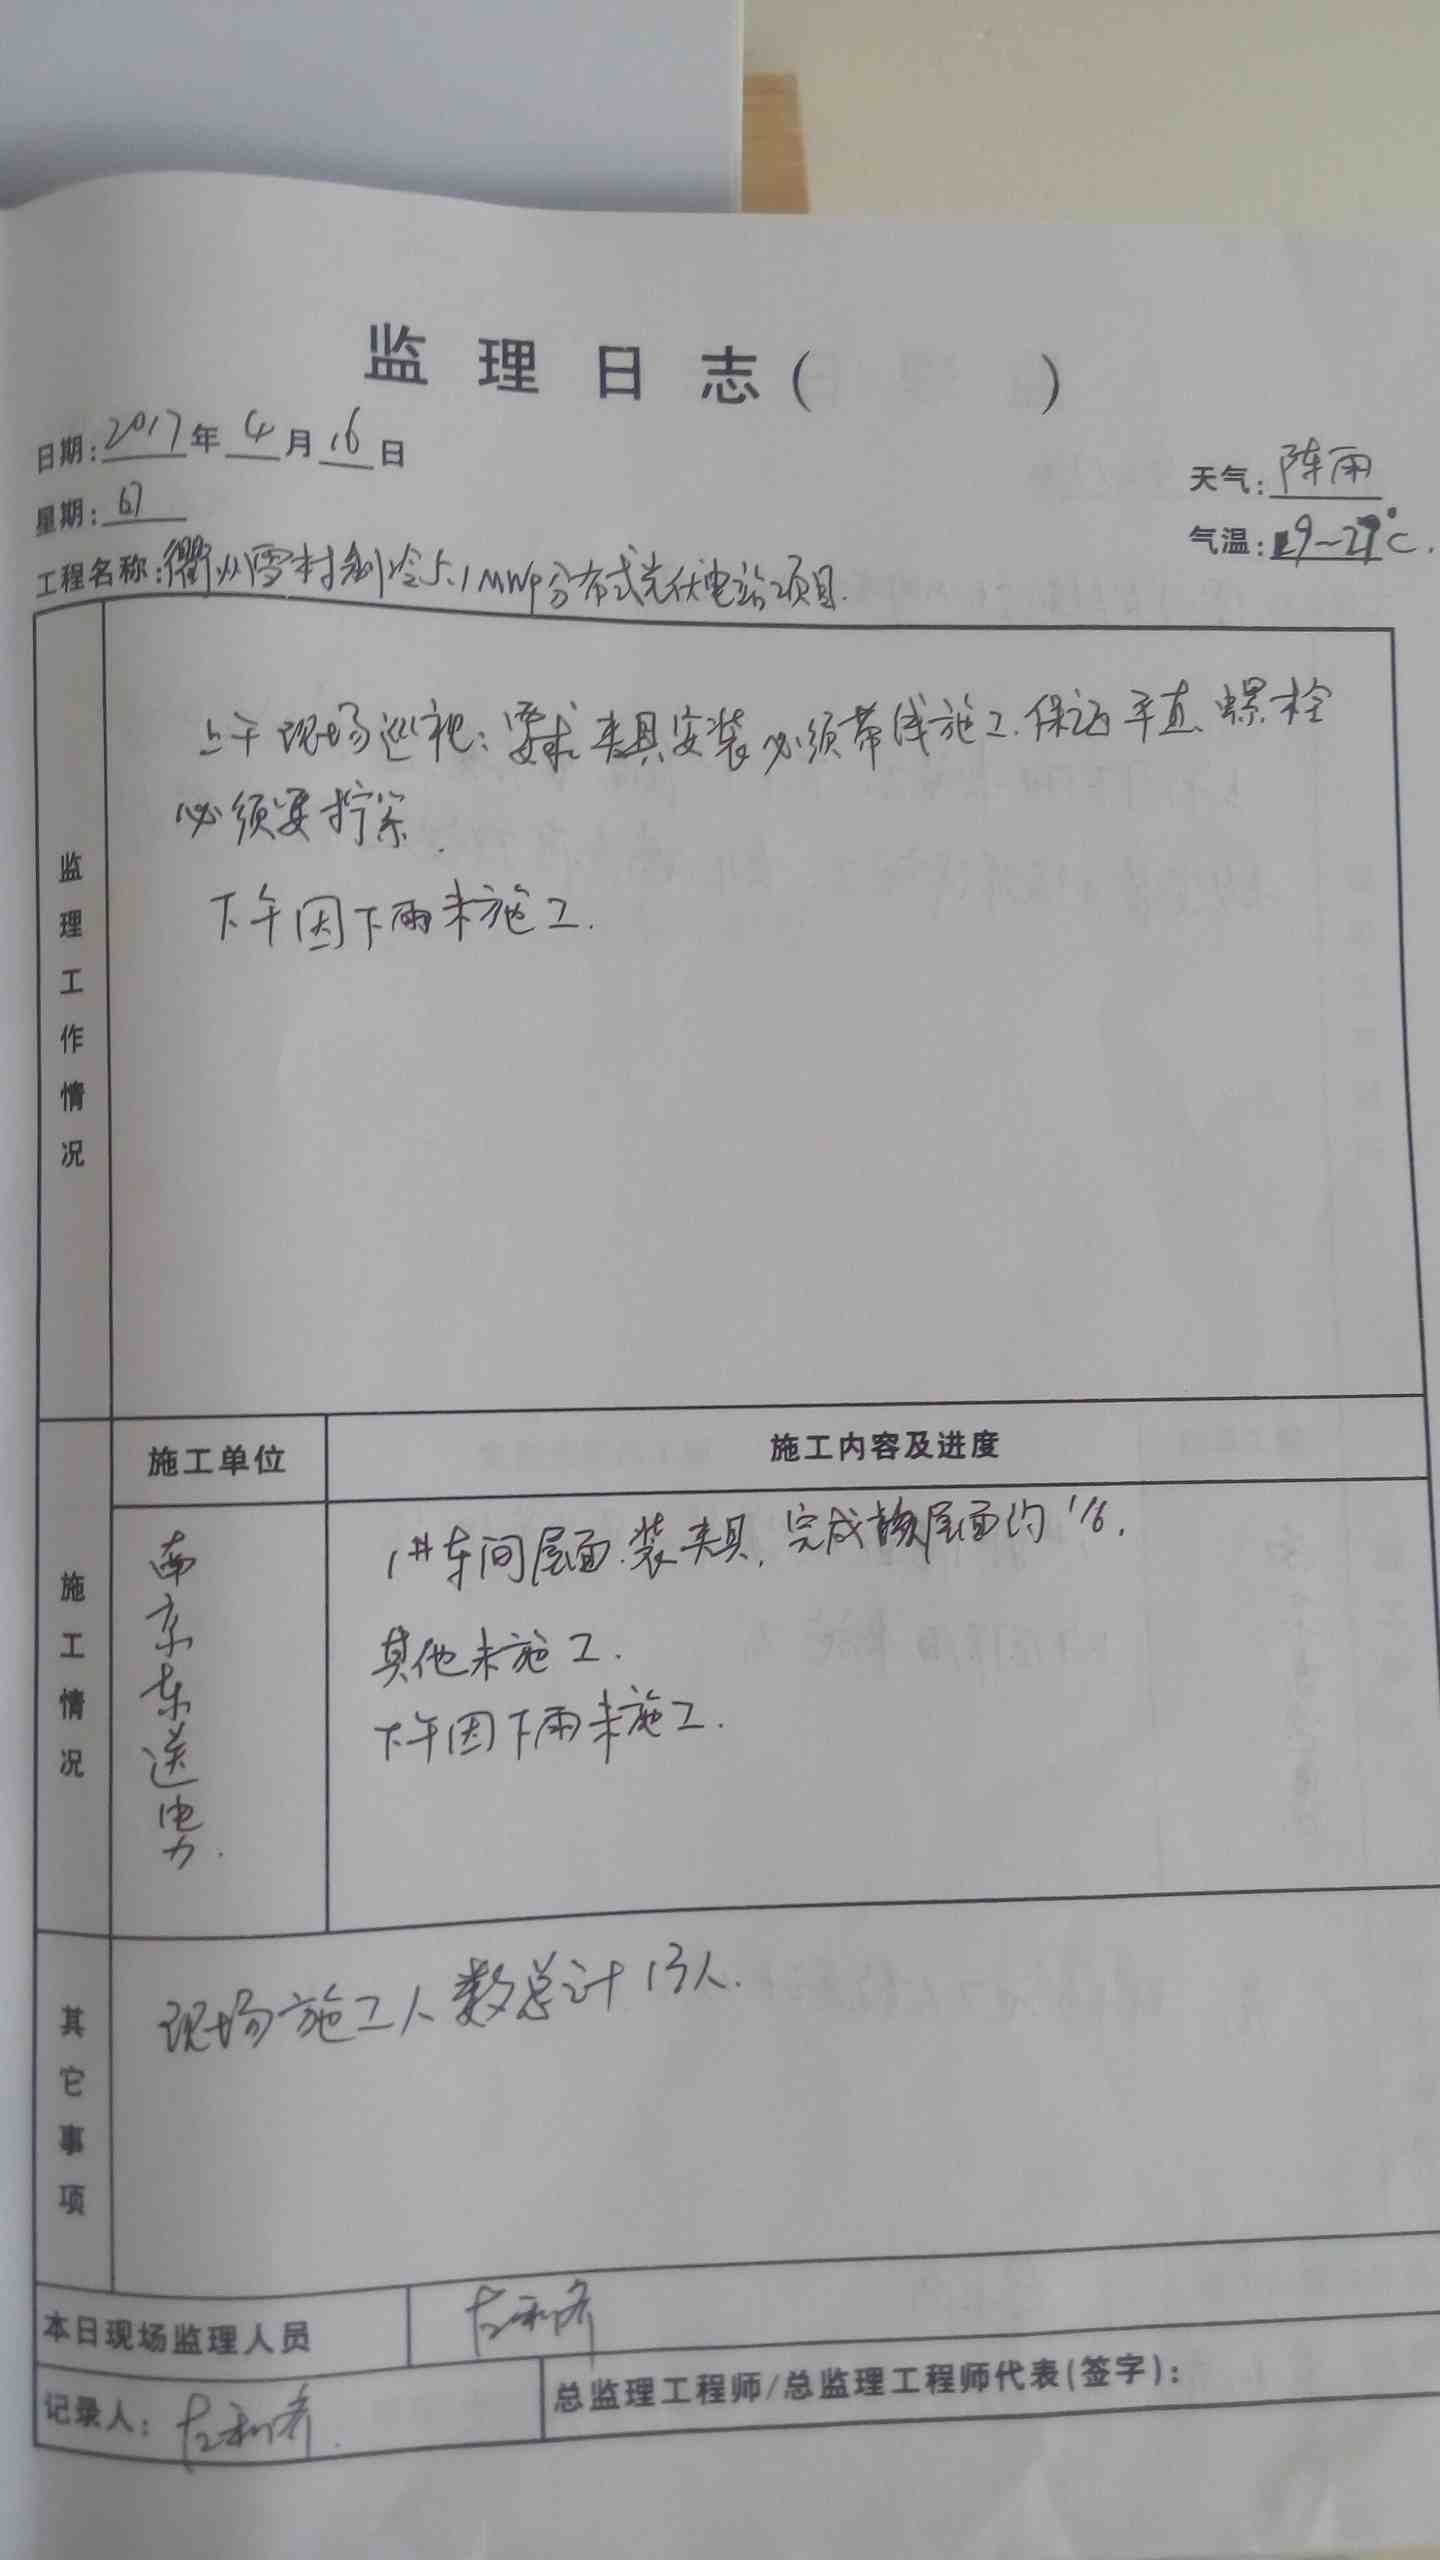 监理日志( )
日期:2017年4月16日
天气:阵雨
星期:日
气温:19~27℃.
工程名称:衢州雪村制冷5.1MWp分布式光伏电站项目.
监理工作情况
上午现场巡视:要求夹具安装必须带线施工.保证平直、螺栓
必须要拧紧.
下午因下雨未施工.
施工情况
施工单位
施工内容及进度
南京东送电力.
1#车间屋面.装夹具,完成该屋面约1/6.
其他未施工.
下午因下雨未施工.
其它事项
现场施工人数总计13人.
本日现场监理人员
记录人:
总监理工程师/总监理工程师代表(签字):